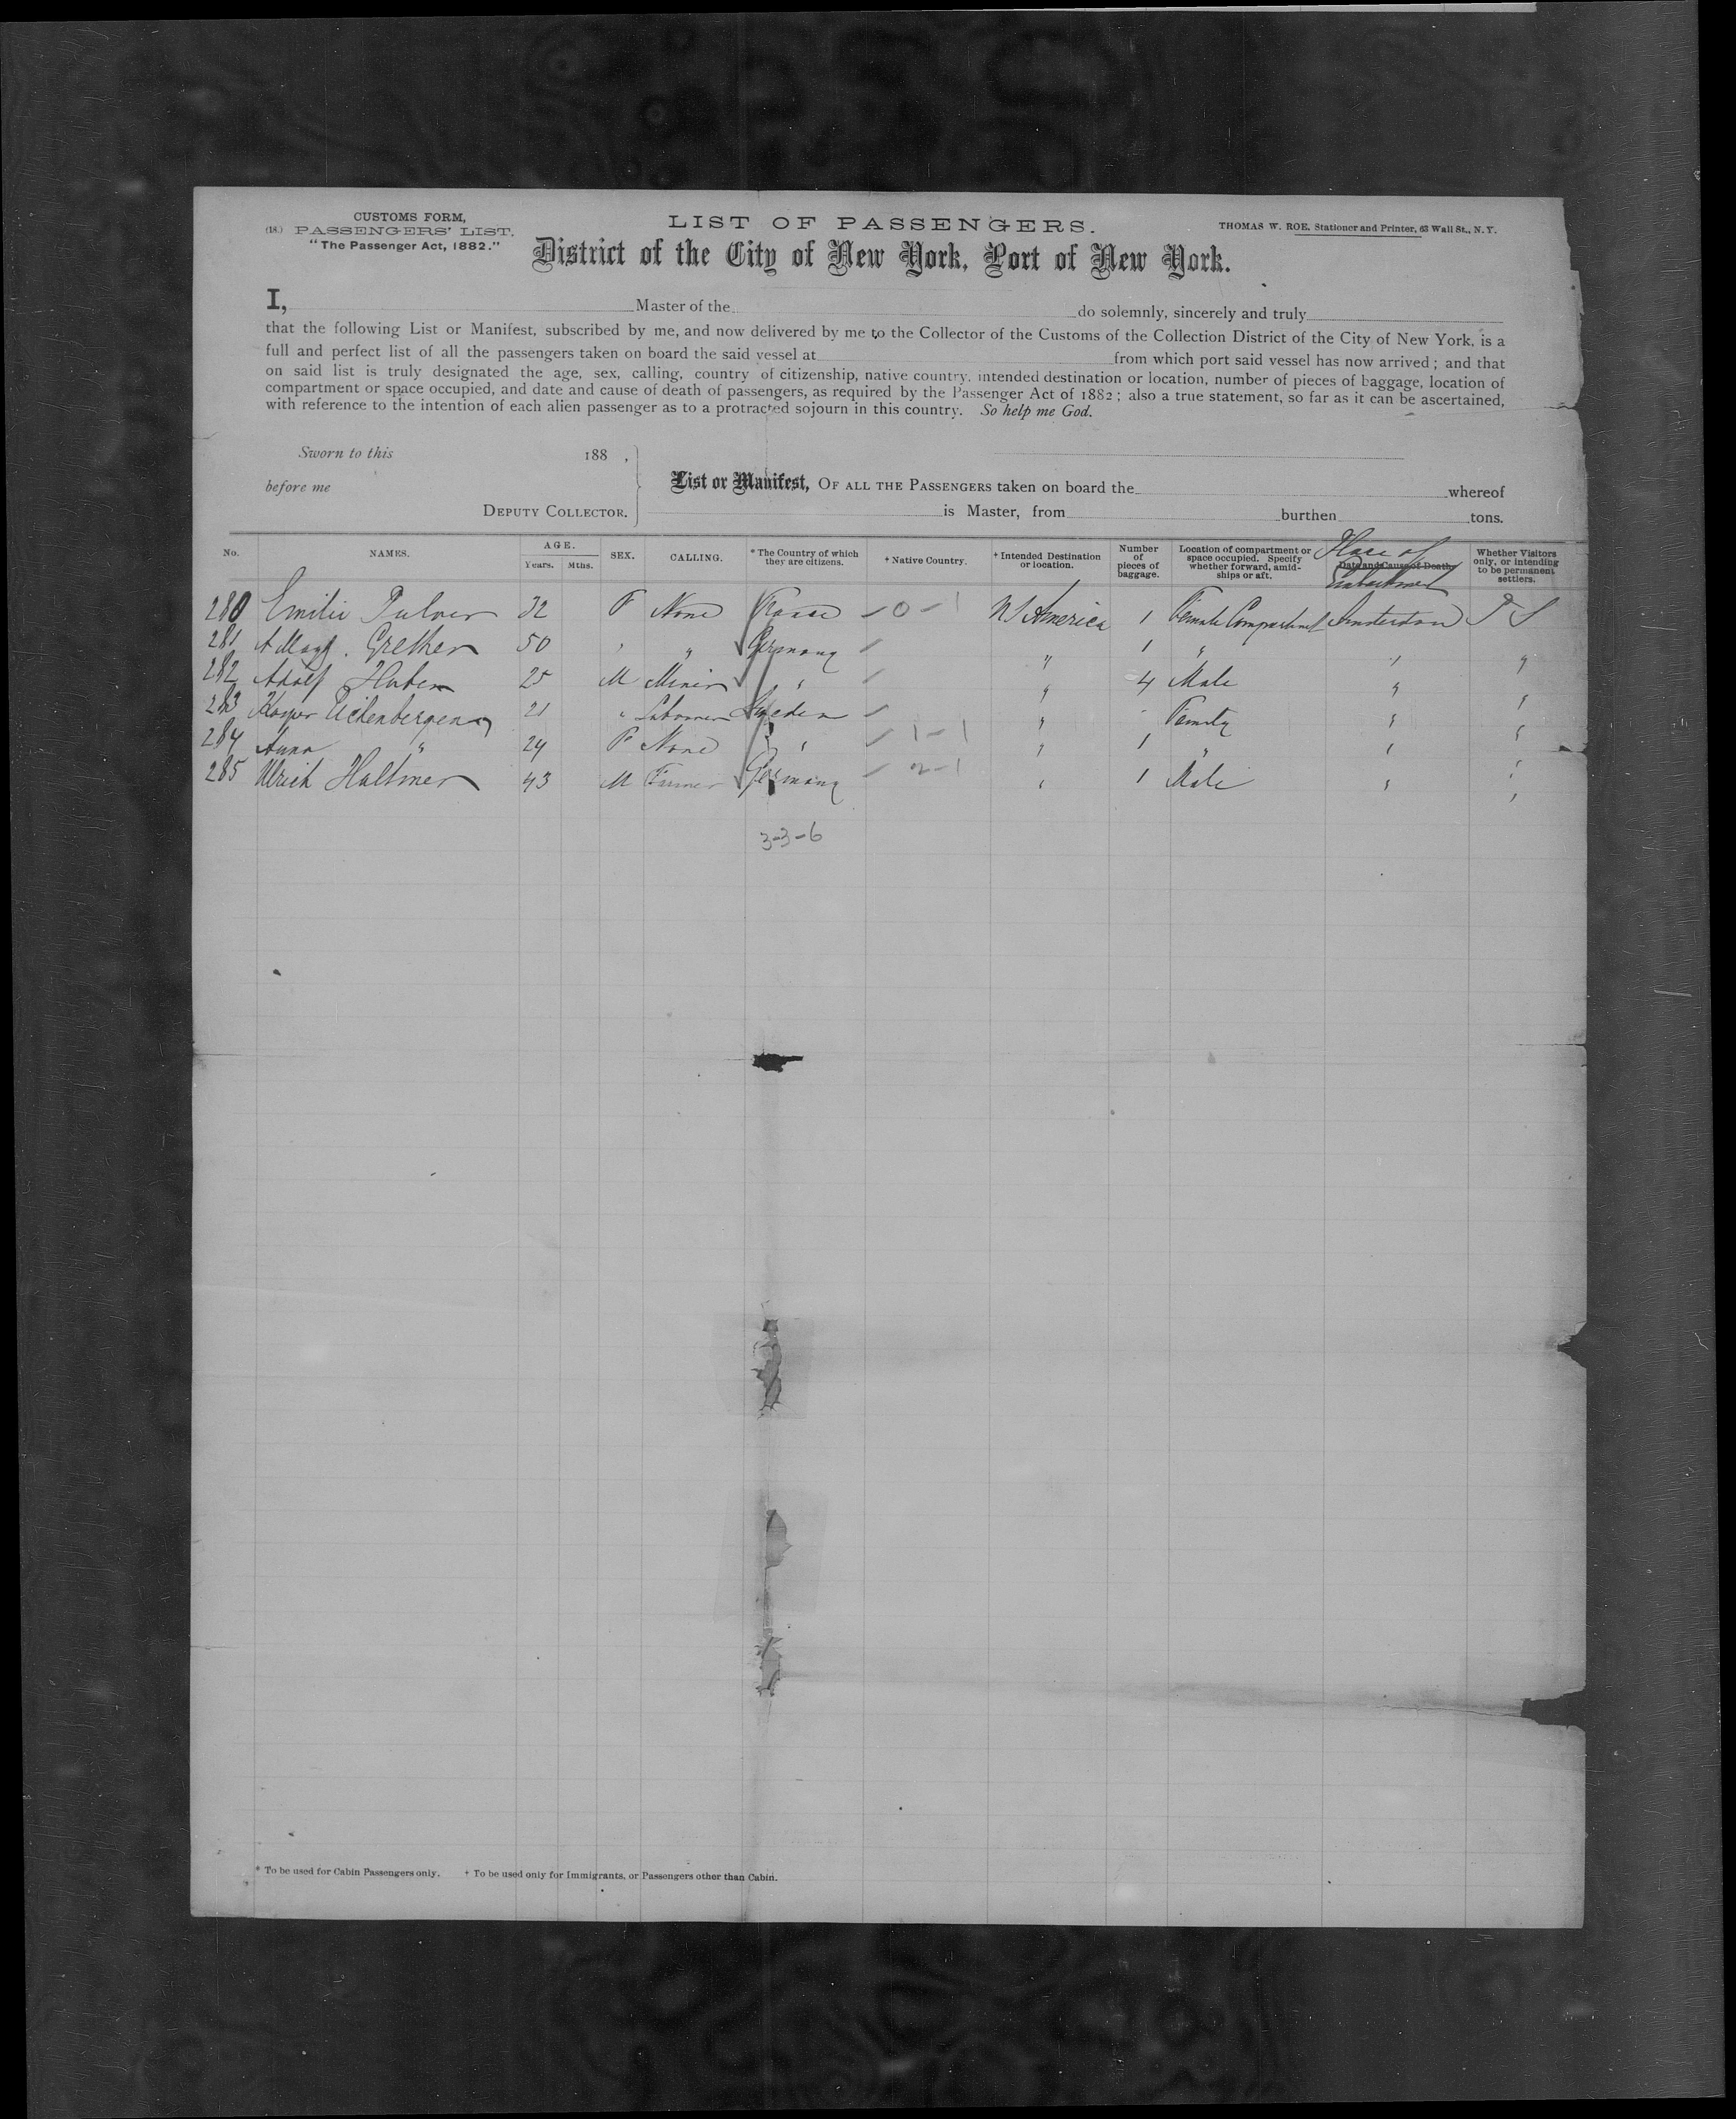 CUSTOMS FORM,
(18.) PASSENGERS' LIST.
"The Passenger Act, 1882."
LIST OF PASSENGERS.
THOMAS W. ROE, Stationer and Printer, 63 Wall St., N.Y.
District of the City of New York, Port of New York.
I, Master of the do solemnly, sincerely and truly
that the following List or Manifest, subscribed by me, and now delivered by me to the Collector of the Customs of the Collection District of the City of New York, is a
full and perfect list of all the passengers taken on board the said vessel at from which port said vessel has now arrived; and that
on said list is truly designated the age, sex, calling, country of citizenship, native country, intended destination or location, number of pieces of baggage, location of
compartment or space occupied, and date and cause of death of passengers, as required by the Passenger Act of 1882; also a true statement, so far as it can be ascertained,
with reference to the intention of each alien passenger as to a protracted sojourn in this country. So help me God.
Sworn to this 188 ,
before me
DEPUTY COLLECTOR.
List or Manifest, OF ALL THE PASSENGERS taken on board the whereof
is Master, from burthen tons.
No.
NAMES.
AGE.
Years. Mths.
SEX.
CALLING.
* The Country of which
they are citizens.
† Native Country.
† Intended Destination
or location.
Number
of
pieces of
baggage.
Location of compartment or
space occupied. Specify
whether forward, amid-
ships or aft.
Place of
Date and Cause of Death.
Embarkment
Whether Visitors
only, or intending
to be permanent
settlers.
280 Emilie Pulver 32 F None France 0-1 N S America 1 Female Compartment Amsterdam P S
281 Grether 50 " " Germany " 1 " " "
282 Adolf Huber 25 M Miner " " 4 Male " "
283 Kasper Eichenberger 21 " Labourer Sweden " Family " "
284 Anna " 24 F None " 1-1 " 1 " " "
285 Ulrich Haltiner 43 M Farmer Germany 2-1 " 1 Male " "
3-3-6
* To be used for Cabin Passengers only. † To be used only for Immigrants, or Passengers other than Cabin.